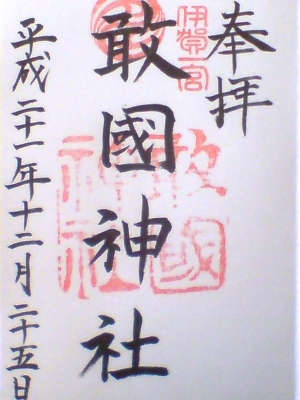 奉拝
伊賀一宮
敢國神社
敢國
神社
平成二十一年十二月二十五日